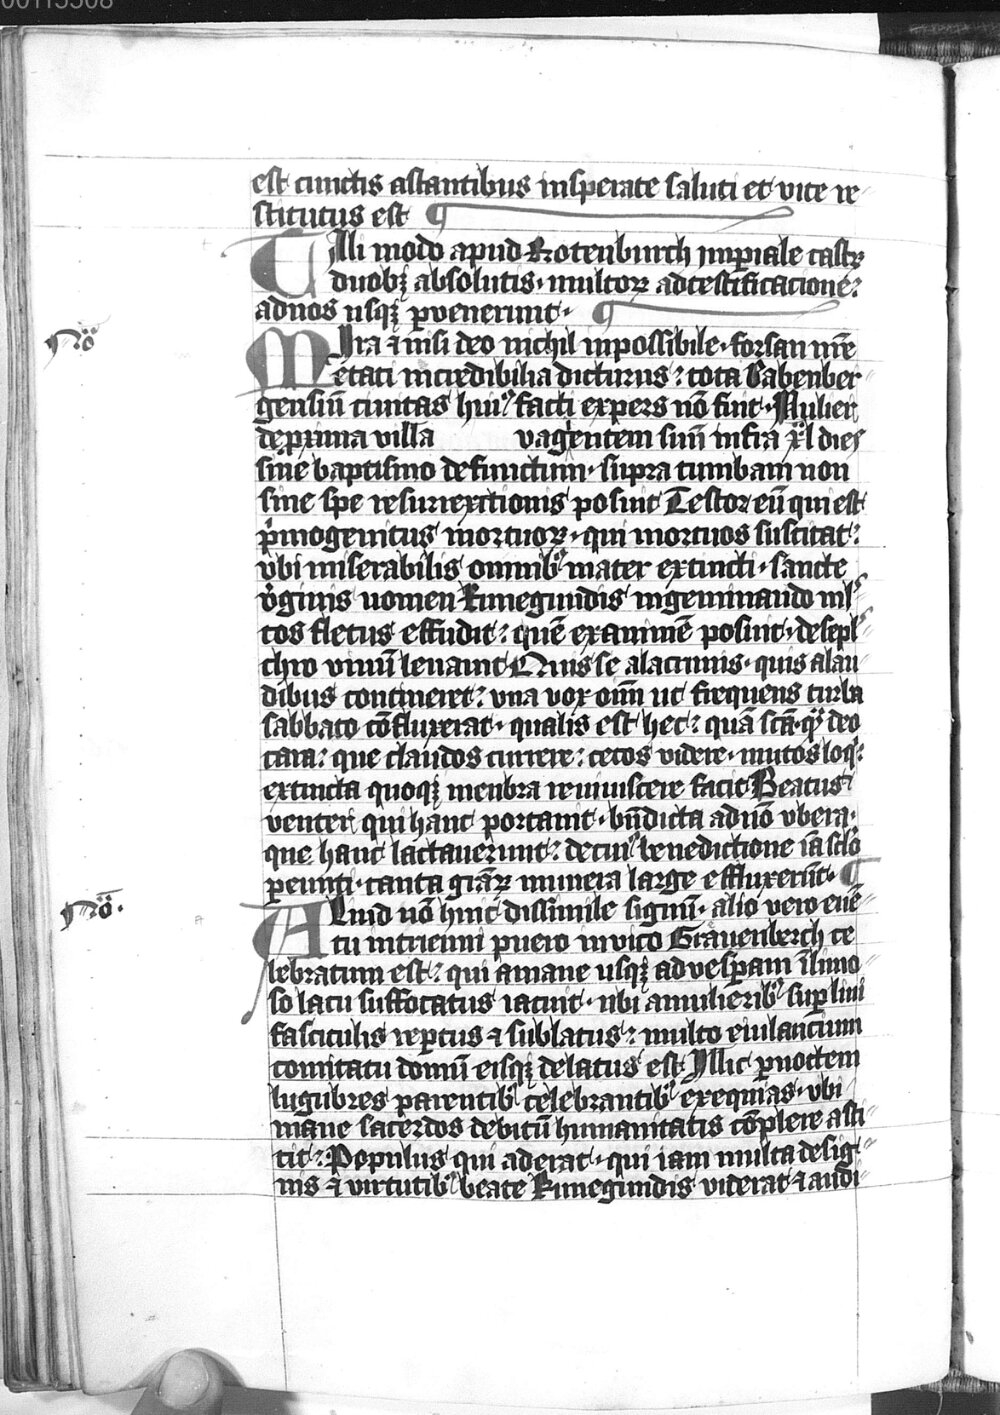 00115508
est cunctis astantibus insperate saluti et vite re
stitutus est
Illi modo apud Rotenburch imp̄iale castꝝ
duobꝫ absolutis · multoꝝ adtestificacione
adnos usqꝫ ꝑvenerunt ·
No᷒
Mira ⁊ nisi deo nichil inpossibile · forsan nr̄e
etati incredibilia dicturus : tota Babenber
gensiū civitas huiꝰ facti expers nō fuit · Mulier
de ꝓxima villa vagientem suū infra xl dies
sine baptismo defunctum · supra tumbam non
sine spe resurrextionis posuit Testor eū qui est
pͥmogenitus mortuoꝝ · qui mortuos suscitat :
vbi miserabilis omnibꝰ mater extincti · sancte
vͥginis nomen Kunegundis ingeminando ml̓
tos fletus effudit : quē exanimē posuit · de sepl̓
chro vivū levavit Quis se alacrimis · quis alau
dibus contineret : vna vox om̄i ut frequens turba
sabbato cōfluxerat · qualis est hec : quā sc̄a · qͣ deo
cara : que claudos currere : cecos videre · mutos loqͥ :
extincta quoqꝫ menbra reviviscere facit Beatus
venter qui hanc portavit · bn̄dicta adnō vbera ·
que hanc lactaverunt : de cuiꝰ benedictione iā sc̄lo
ꝑeunti · tanta gr̄aꝝ munera large effluxerūt ·
No᷒ ·
Aliud nō huic dissimile signū · alio vero evē
tu in trienni puero in vico Grauenberch ce
lebratum est : qui amane usqꝫ ad vesꝑam ī limo
so lacu suffocatus iacuit · ubi amulieribꝰ suꝑ lini
fasciculis reꝑtus ⁊ sublatus : multo eiulantium
comitatu domū eisqꝫ delatus est Illic ꝑ noctem
lugubres parentibꝰ celebrantibꝰ exequias · vbi
mane sacerdos debitū humanitatis cōplere asti
tit : Populus qui aderat · qui iam multa de sig
nis ⁊ virtutibꝰ beate Kunegundis viderat ⁊ audi